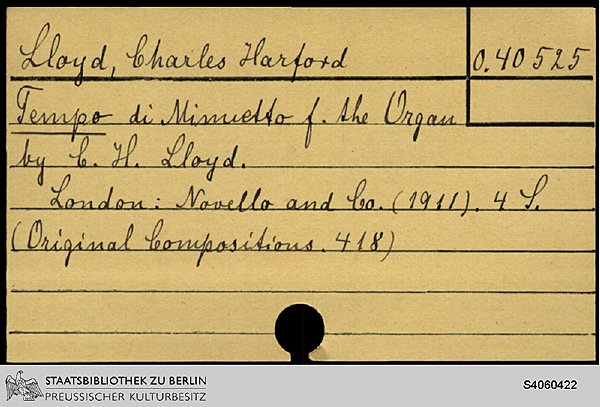 Lloyd, Charles Harford
O.40 525
Tempo di Minuetto f. the Organ
by C. H. Lloyd.
London: Novello and Co. (1911). 4 S.
(Original Compositions. 418)
STAATSBIBLIOTHEK ZU BERLIN
PREUSSISCHER KULTURBESITZ
S4060422